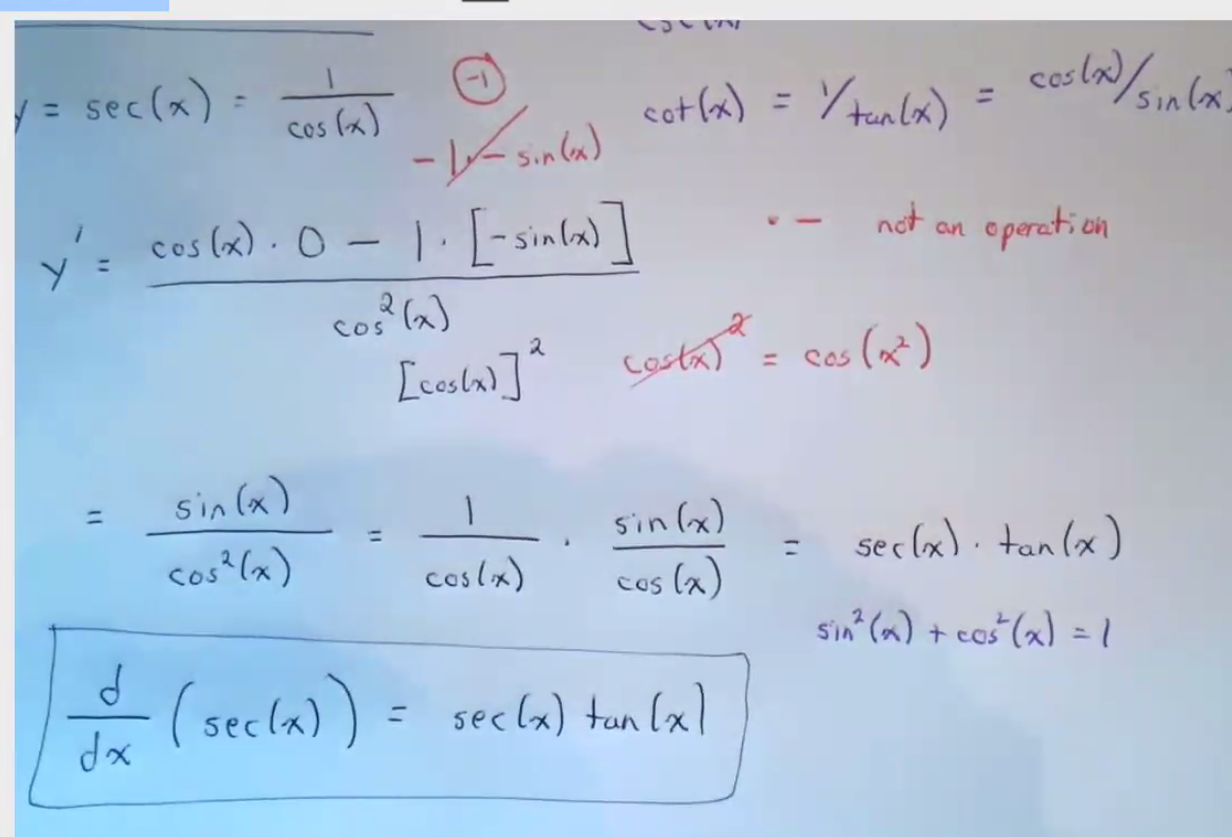 y = sec(x) = 1/cos(x)
(-1)
cot(x) = 1/tan(x) = cos(x)/sin(x
-1·-sin(x)
y' = cos(x)·0 - 1·[-sin(x)] / cos²(x)
· - not an operation
[cos(x)]²
cos(x)² = cos(x²)
= sin(x)/cos²(x) = 1/cos(x) · sin(x)/cos(x) = sec(x)·tan(x)
sin²(x) + cos²(x) = 1
d/dx (sec(x)) = sec(x) tan(x)